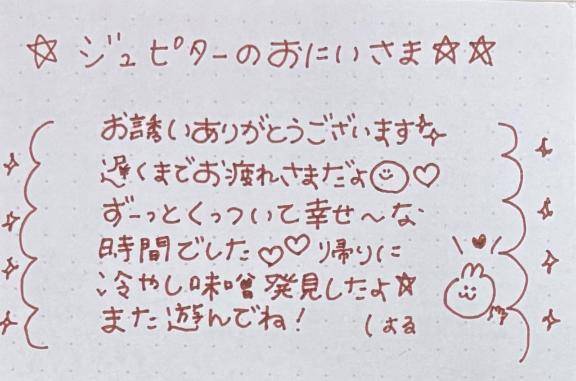 ☆ ジュピターのおにいさま ☆☆
お誘いありがとうございます
遅くまでお疲れさまだよ♡
ずーっとくっついて幸せ〜な
時間でした♡♡ 帰りに
冷やし味噌発見したよ☆
また遊んでね!
はる